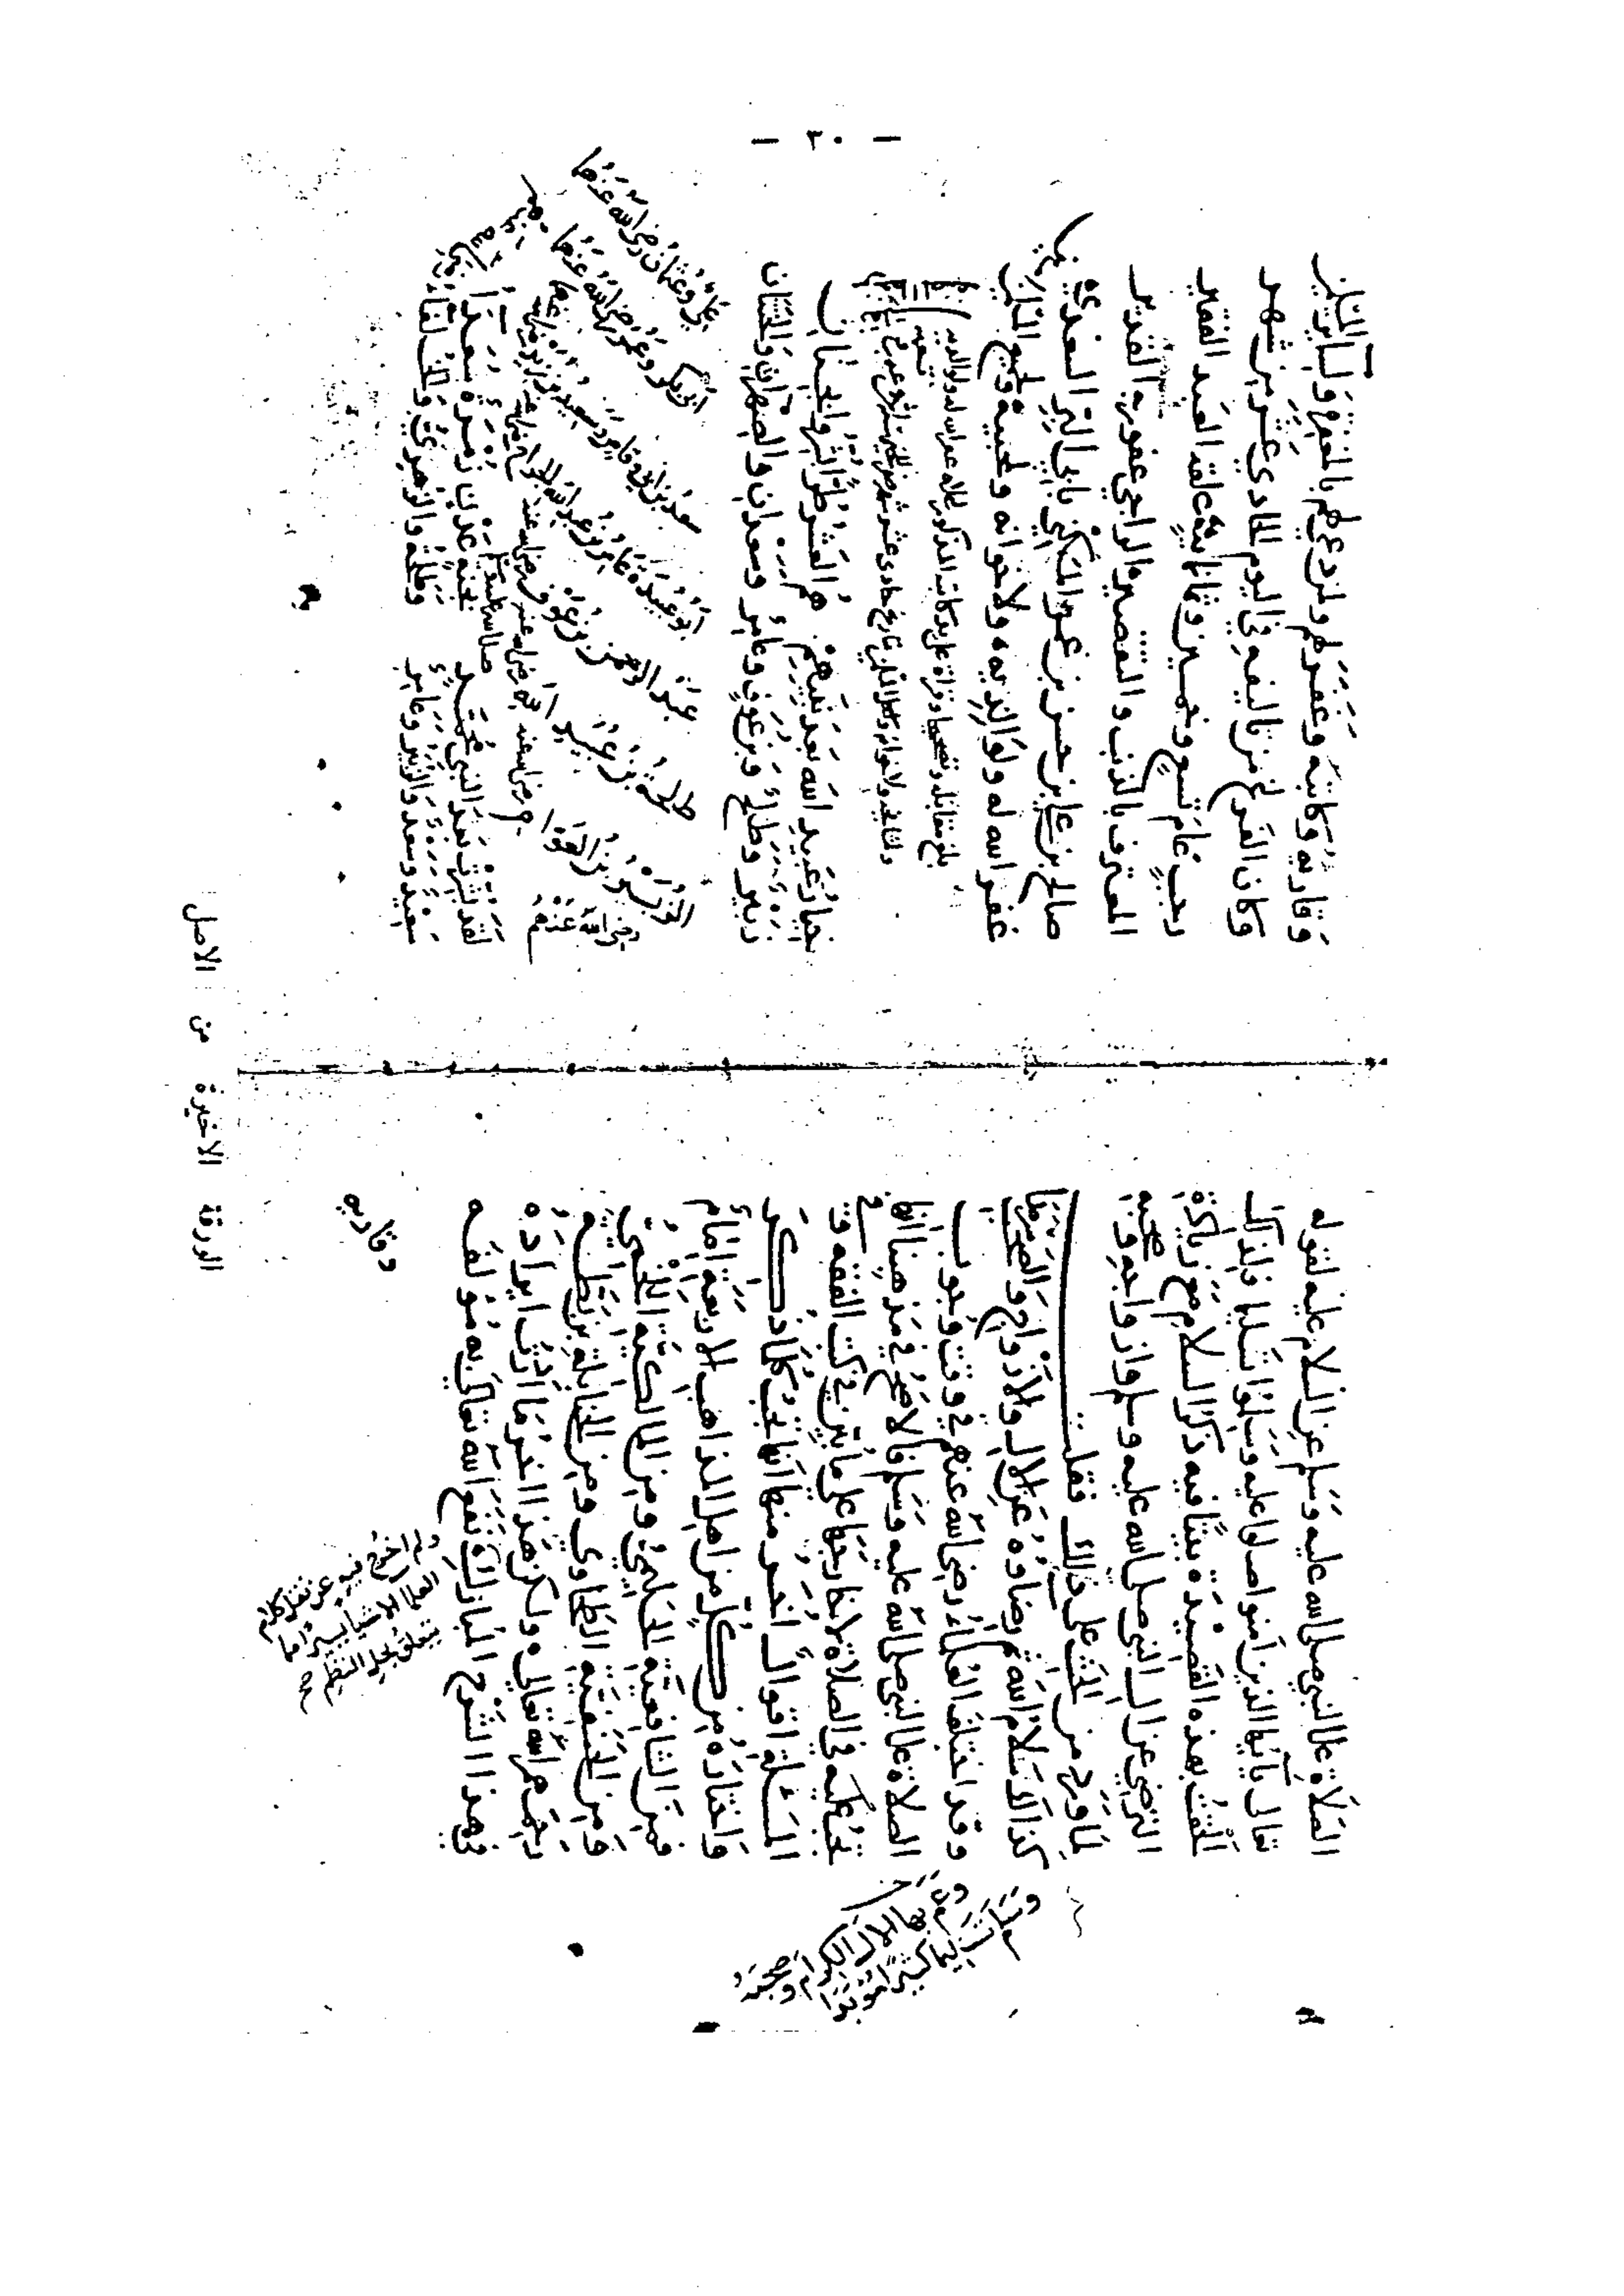 — ٢٠ —
الصلاة على النبي صلى الله عليه وسلم عن السلام عليه لقوله
تعالى يا أيها الذين آمنوا صلوا عليه وسلموا تسليما فلذلك
ألحقت بهذه القصيدة بيتا فيه ذكر السلام مع زيادة
الترضي عن آل النبي صلى الله عليه وسلم وأزواجه وصحبه
لما ورد من الحث على ذلك فقلت
كذاك سلام الله ثم رضاؤه عن الآل والأزواج والصحب
وقد اختلف العلماء رضي الله عنهم في وقت وجوب
الصلاة على النبي صلى الله عليه وسلم فالأصح في مذهبنا أنها
تجب عليه في الصلاة لا خارجها على ما بين في كتب الفقه وفي
المسئلة أقوال أخر منها أنها تجب كلما ذكر
واختاره من كل من أهل المذاهب الأربعة إمام
فمن الشافعية الحليمي ومن المالكية اللخمي
ومن الحنفية الطحاوي ومن الحنابلة بن بطة
رحمهم الله تعالى ولكن هذا آخر ما أردت إيراده
بهذا الشرح المبارك نفع الله تعالى به مؤلفه
وقاريه
ولم أخرج فيه عن نقل كلام
العلما إلا شيا يسيرا مما
يتعلق بحل النظم صح
وعم بها الآل الكرام وصحبه
وسلم تسليما كثيرا مؤبدا
وقاريه وكاتبه وغفر لهم ولمن دعى لهم بالمغفرة ولساير المسلمين آمين
وكان الفراغ من تاليفه في اليوم الحادي عشر من شهر
رجب عام تسع وخمسين وثمانمائة علقه العبد الفقير
المعترف بالذنب والتقصير الراجي عفو ربه القدير
صالح بن علي بن حسن بن عمر
غفر الله له ولوالديه ولاخوانه ولمحبيه ولجميع المسلمين
بلغ مقابلة وتصحيحا وقراة على يد كاتبه
خيار عبيد الله بعد نبيهم هم العشر طرا بشروا بجنان
زبير وطلح وبن عوف وعامر وسعدان والصهران والختنان
علي وعثمان رضي الله عنهما
أبو بكر وعمر رضي الله عنهما
سعد بن أبي وقاص وسعيد بن زيد
أبو عبيدة عامر بن عبد الله الجراح
عبد الرحمن بن عوف رضي الله عنه
طلحة بن عبيد الله رضي الله عنه
الزبير بن العوام
رضي الله عنهم
لقد بشرت بعد النبي محمد بجنة عدن زمرة سعداء
صلى الله عليه وسلم
سعيد وسعد والزبير وعامر وطلحة والزهري والخلفاء
الورقة الاخيرة من الاصل